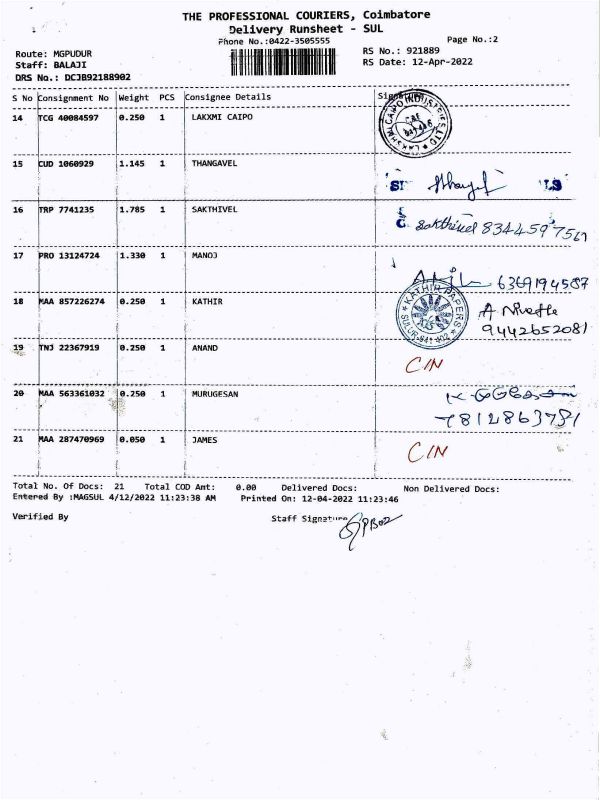 THE PROFESSIONAL COURIERS, Coimbatore
Delivery Runsheet - SUL
Phone No.:0422-3505555
Page No.:2
Route: MGPUDUR
RS No.: 921889
Staff: BALAJI
RS Date: 12-Apr-2022
DRS No.: DCJB92188902
S No Consignment No Weight PCS Consignee Details Signature
14 TCG 40084597 0.250 1 LAKXMI CAIPO
15 CUD 1060929 1.145 1 THANGAVEL
16 TRP 7741235 1.785 1 SAKTHIVEL Sakthivel 8344597567
17 PRO 13124724 1.330 1 MANOJ 6369194587
18 MAA 857226274 0.250 1 KATHIR KATHIR PAPERS SULUR-641 402 9442652081
19 TNJ 22367919 0.250 1 ANAND CIN
20 MAA 563361032 0.250 1 MURUGESAN 7812863751
21 MAA 287470969 0.050 1 JAMES CIN
Total No. Of Docs: 21 Total COD Amt: 0.00 Delivered Docs: Non Delivered Docs:
Entered By :MAGSUL 4/12/2022 11:23:38 AM Printed On: 12-04-2022 11:23:46
Verified By Staff Signature